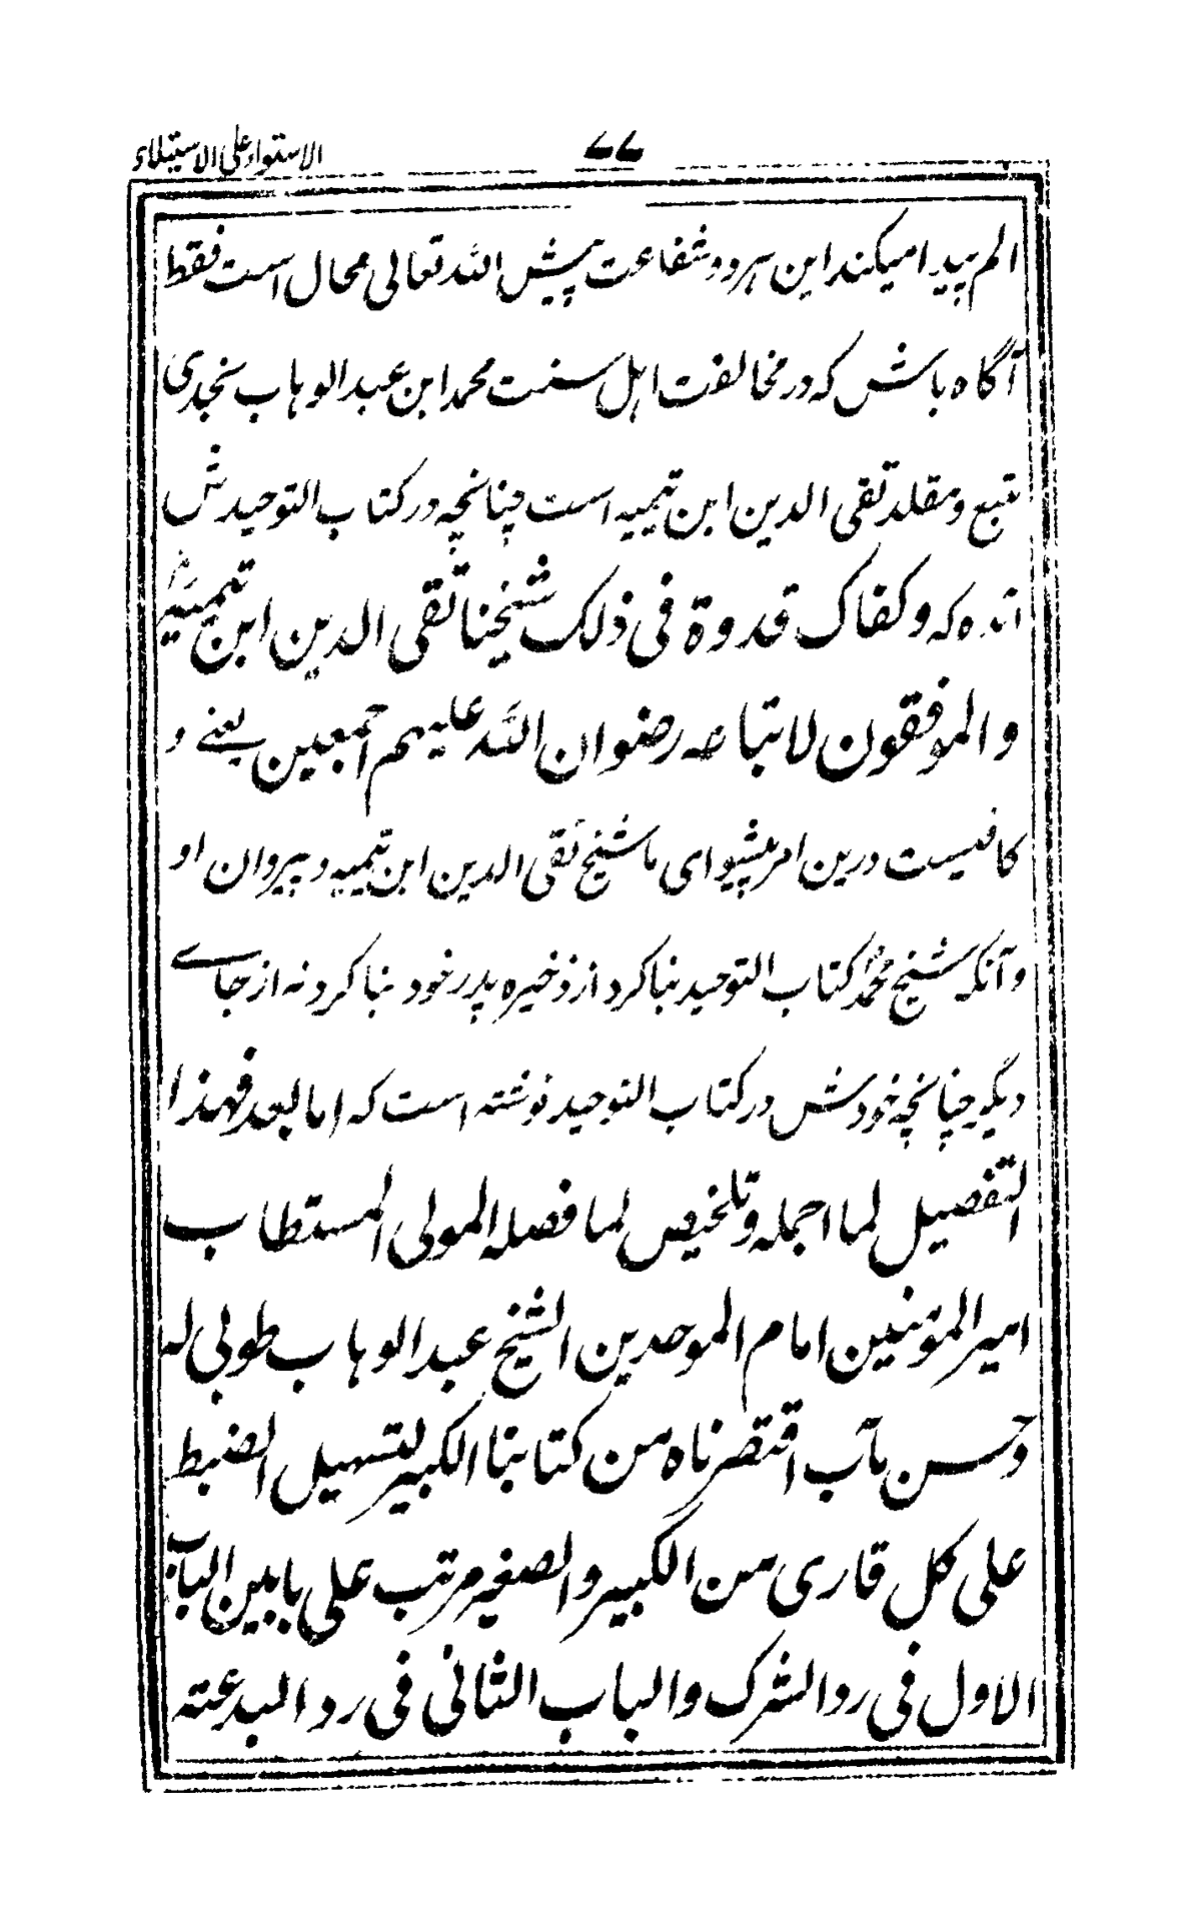 الاستواء علی الاستیلاء
۷۷
الم پیدا میکند این هر دو شفاعت پیش الله تعالی محال است فقط
آگاه باش که در مخالفت اهل سنت محمد ابن عبدالوهاب نجدی
متبع و مقلد تقی الدین ابن تیمیه است چنانچه در کتاب التوحیدش
آنده که و کفاک قدوة فی ذلک شیخنا تقی الدین ابن تیمیة
والموفقون لاتباعه رضوان الله علیهم اجمعین یعنے و
کافیست درین امر پیشوای ما شیخ تقی الدین ابن تیمیه و پیروان او
و آنکه شیخ محمد کتاب التوحید بنا کرد از ذخیره پدر خود بنا کرد نه از جاے
دیگر چنانچه خودش در کتاب التوحید نوشته است که اما بعد فهذا
التفصیل لما اجمله وتلخیص لما فصله المولی المستطاب
امیر المؤمنین امام الموحدین الشیخ عبد الوهاب طوبی له
وحسن مآب اقتصرناه من کتابنا الکبیر لتسهیل الضبط
علی کل قاری من الکبیر والصغیر مرتب علی بابین الباب
الاول فی رد الشرک والباب الثانی فی رد البدعته